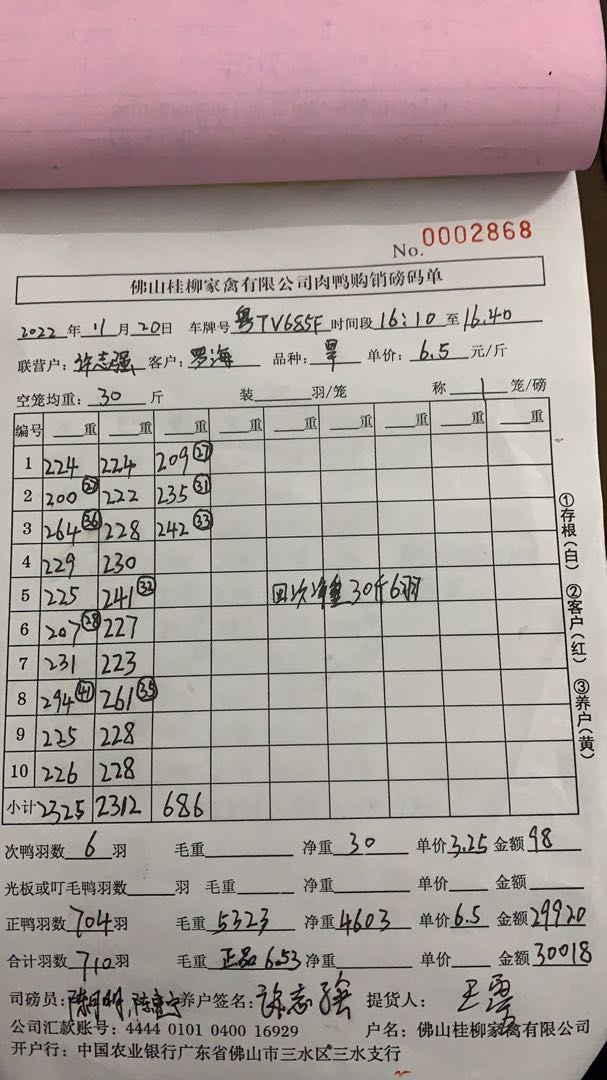 No. 0002868
佛山桂柳家禽有限公司肉鸭购销磅码单
2022 年 11 月 20 日 车牌号 粤TV685F 时间段 16:10 至 16.40
联营户: 许志强 客户: 罗海 品种: 旱 单价: 6.5 元/斤
空笼均重: 30 斤 装 羽/笼 称 1 笼/磅
编号 重 重 重 重 重 重 重 重
1 224 224 209 27
2 200 27 222 235 31
3 264 36 228 242 33
4 229 230
5 225 241 32 次净重30斤6羽
6 207 28 227
7 231 223
8 294 41 261 35
9 225 228
10 226 228
小计 2325 2312 686
①存根(白) ②客户(红) ③养户(黄)
次鸭羽数 6 羽 毛重 净重 30 单价 3.25 金额 98
光板或叮毛鸭羽数 羽 毛重 净重 单价 金额
正鸭羽数 704 羽 毛重 5323 净重 4603 单价 6.5 金额 29920
合计羽数 710 羽 毛重 正品 6.53 净重 单价 金额 30018
司磅员: 养户签名: 许志强 提货人: 王
公司汇款账号: 4444 0101 0400 16929 户名: 佛山桂柳家禽有限公司
开户行: 中国农业银行广东省佛山市三水区三水支行